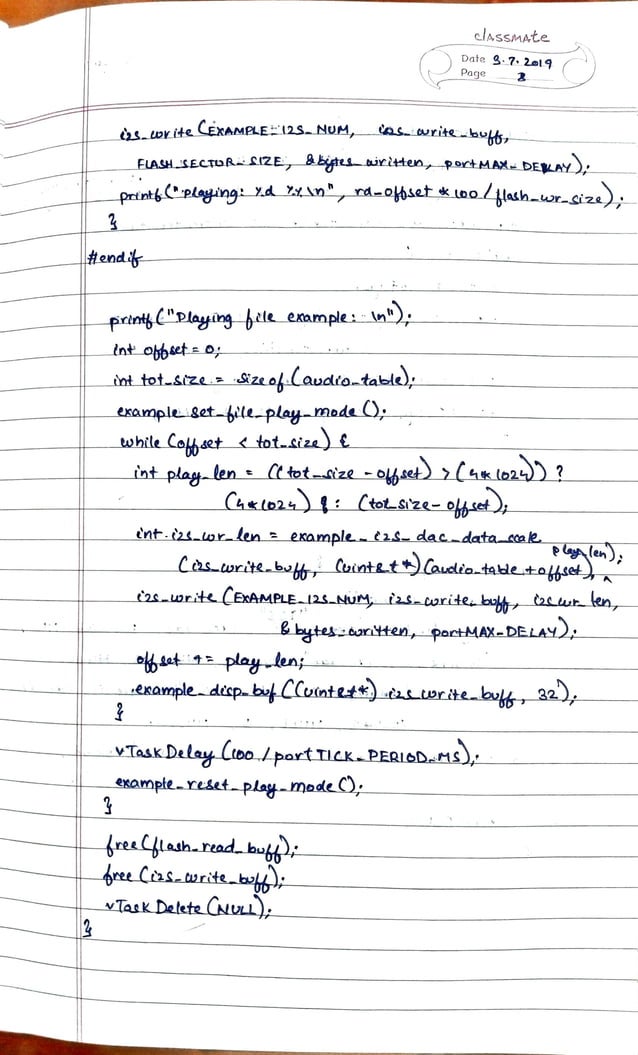 classmate
Date 3.7.2019
Page 3
i2s_write (EXAMPLE_I2S_NUM, i2s_write_buff,
FLASH_SECTOR_SIZE, &bytes_written, portMAX_DELAY);
printf ("playing: %d %%\n", rd_offset * 100 / flash_wr_size);
}
#endif
printf ("Playing file example: \n");
int offset = 0;
int tot_size = sizeof (audio_table);
example_set_file_play_mode ();
while (offset < tot_size) {
int play_len = ((tot_size - offset) > (4*1024)) ?
(4*1024) : (tot_size - offset);
int i2s_wr_len = example_i2s_dac_data_scale
(i2s_write_buff, (uint8_t*) (audio_table + offset), play_len);
i2s_write (EXAMPLE_I2S_NUM, i2s_write_buff, i2s_wr_len,
&bytes_written, portMAX_DELAY);
offset += play_len;
example_disp_buf ((uint8_t*) i2s_write_buff, 32);
}
vTaskDelay (100 / portTICK_PERIOD_MS);
example_reset_play_mode ();
}
free (flash_read_buff);
free (i2s_write_buff);
vTaskDelete (NULL);
}